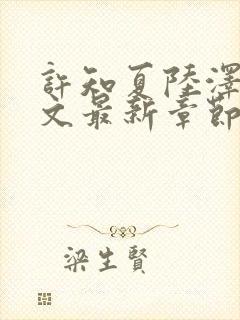 許知夏陸澤
文最新章節
梁生賢